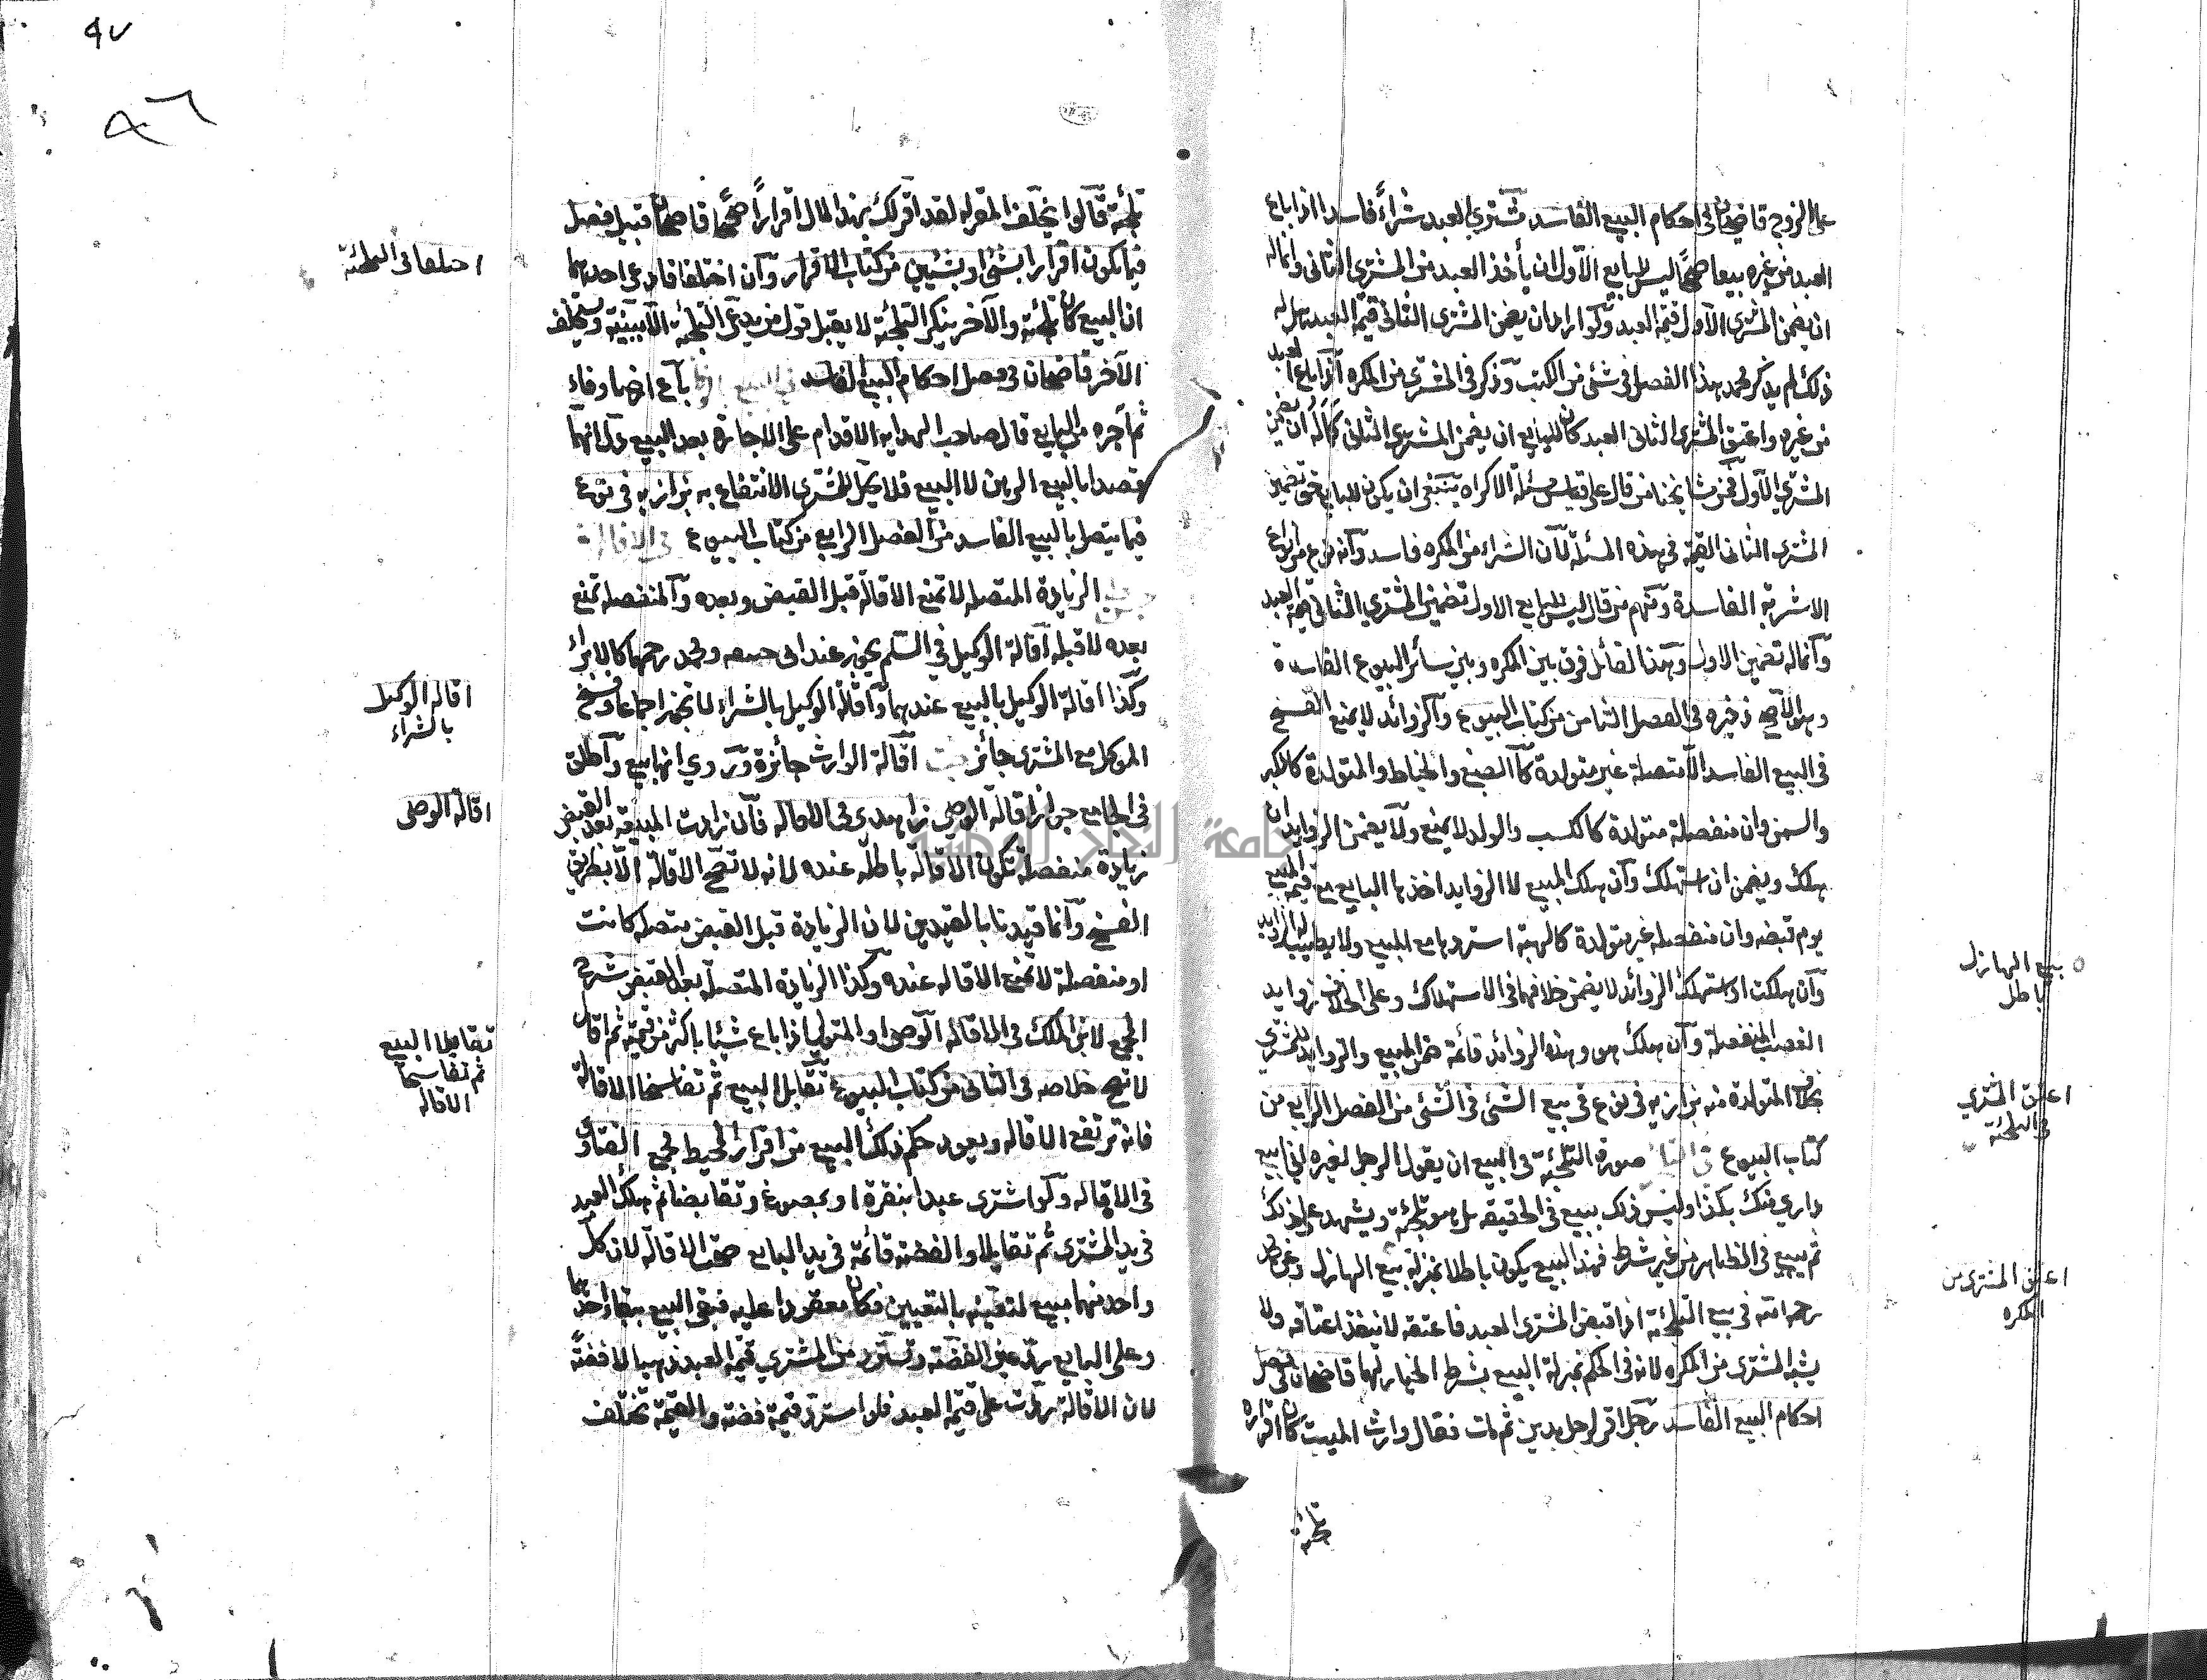 على الزوج قاضيخان في احكام البيع الفاسد مشتري العبد شراءً فاسدا اذا باع
العبد من غيره بيعا صحيحًا ليس للبايع الاول ان يأخذ العبد من المشتري الثاني وانما له
ان يضمن المشتري الاول قيمة العبد ولو اراد ان يضمن المشتري الثاني قيمة العبد هل له
ذلك لم يذكر محمد هذا الفصل في شئ من الكتب وذكر في المشتري من المكره اذا باع العبد
من غيره واعتق المشتري الثاني العبد كان للبايع ان يضمن المشتري الثاني كما له ان يضمن
المشتري الاول فمن مشايخنا من قال على قياس مسئلة الاكراه ينبغي ان يكون للبايع حق تضمين
المشتري الثاني القيمة في هذه المسئلة لان الشراء من المكره فاسد وانه نوع من انواع
الاشرية الفاسدة ومنهم من قال ليس للبايع الاول تضمين المشتري الثاني قيمة العبد
وانما له تضمين الاول وهذا القائل فرق بين المكره وبين سائر البيوع الفاسدة
وهو الاصح ذخيره في الفصل الثامن من كتاب البيوع والزوائد لا يمنع الفسخ
في البيع الفاسد الا متصلة غير متولدة كالصبغ والخياط والمتولدة كالكبر
والسمن وان منفصلة متولدة كالكسب والولد لا يمنع ولا يضمن الزوايد ان
هلك ويضمن ان استهلك وان هلك المبيع لا الزوايد اخذها البايع مع قيمة المبيع
يوم قبضه وان منفصلة غير متولدة كالهبة استردها مع المبيع ولا يطيب له الزوايد
وان هلكت او استهلك الزوائد لا يضمن خلافهما في الاستهلاك وعلى الخلاف زوايد
الغصب المنفصلة وان هلك هو وهذه الزوائد قائمة ضمن المبيع والزوايد للمشتري
بخلاف المتولدة منه بزازيه في نوع في بيع الشئ في الشئ من الفصل الرابع من
كتاب البيوع صورة التلجئة في البيع ان يقول الرجل لغيره اني ابيع
داري منك بكذا وليس ذلك ببيع في الحقيقه بل هو تلجئة ويشهد على ذلك
ثم يبيع في الظاهر من غير شرط فهذا البيع يكون باطلا بمنزلة بيع الهازل وعن محمد
رحمه الله في بيع التلجئة اذا قبض المشتري العبد فاعتقه لا ينفذ اعتاقه ولا
يشبه المشتري من المكره لانه في الحكم بمنزلة البيع بشرط الخيار لهما قاضيخان في فصل
احكام البيع الفاسد رجل اقر لرجل بدين ثم مات فقال وارث الميت كان اقراره
تلجئة
بيع الهازل
باطل
اعتق المشتري
في التلجئة
اعتق المشتري من
المكره
٩٧
٩٦
تلجئة قالوا يحلف المقر له لقد اقر لك بهذا المال اقرارًا صحيحًا قاضيخان قبيل فصل
فيما يكون اقرارا بشئ او بشيئين من كتاب الاقرار وان اختلفا فادعى احدهما
ان البيع كان تلجئة والآخر ينكر التلجئة لا يقبل قول من يدعي التلجئة الا ببينة ويستحلف
الآخر قاضيخان في فصل احكام البيع الفاسد باع ارضها وفاء
ثم آجره من البايع قال صاحب الهدايه الاقدام على الاجارة بعد البيع دل انهما
قصدا بالبيع الرهن لا البيع فلا يحل للمشتري الانتفاع به بزازيه في نوع
فيما يتصل بالبيع الفاسد من الفصل الرابع من كتاب البيوع في الاقالة
الزيادة المتصله لا تمنع الاقالة قبل القبض وبعده والمنفصله تمنع
بعده لا قبله اقالة الوكيل في السلم يجوز عند ابي حنيفه ومحمد رحمهما كالابراء
وكذا اقالة الوكيل بالبيع عندهما واقالة الوكيل بالشراء لا تجوز اجماعا وفسخ
الموكل مع المشتري جائز اقالة الوارث جائزة وروي انها بيع واطلق
في الجامع جواز اقالة الوصي زاهدي في الاقاله فان زادت المبيعة بعد القبض
زيادة منفصلة تكون الاقالة باطله عنده لانه لا تصح الاقالة الا بطريق
الفسخ وانما قيدنا بالقيدين لان الزيادة قبل القبض متصله كانت
او منفصلة لا تمنع الاقاله عنده وكذا الزيادة المتصله بعد القبض شرح
المجمع لابن الملك في الاقاله الوصي او المتولي اذا باع شيئا باكثر من قيمته ثم اقال
لا تصح خلاصه في الثاني من كتاب البيوع تقايلا البيع ثم تفاسخا الاقالة
فانه ترتفع الاقاله ويعود حكم ذلك البيع من اقرار المحيط مجمع الفتاوى
في الاقاله ولو اشترى عبدا بنقرة او بمصوغ وتقابضا ثم هلك العبد
في يد المشتري ثم تقايلا والفضة قائمة في يد البايع صحت الاقالة لان كل
واحد منهما مبيع لتعينه بالتعيين فكان معقودا عليه فبقي البيع ببقاء احدهما
وعلى البايع رد عين الفضة ويسترد من المشتري قيمة العبد ذهبا لا فضةً
لان الاقالة وردت على قيمة العبد فلو استرد قيمة فضة والقيمة تختلف
اختلفا في التلجئة
اقالة الوكيل
بالشراء
اقالة الوصي
تقايلا البيع
ثم تفاسخا
الاقاله
جامعة النجاح الوطنية